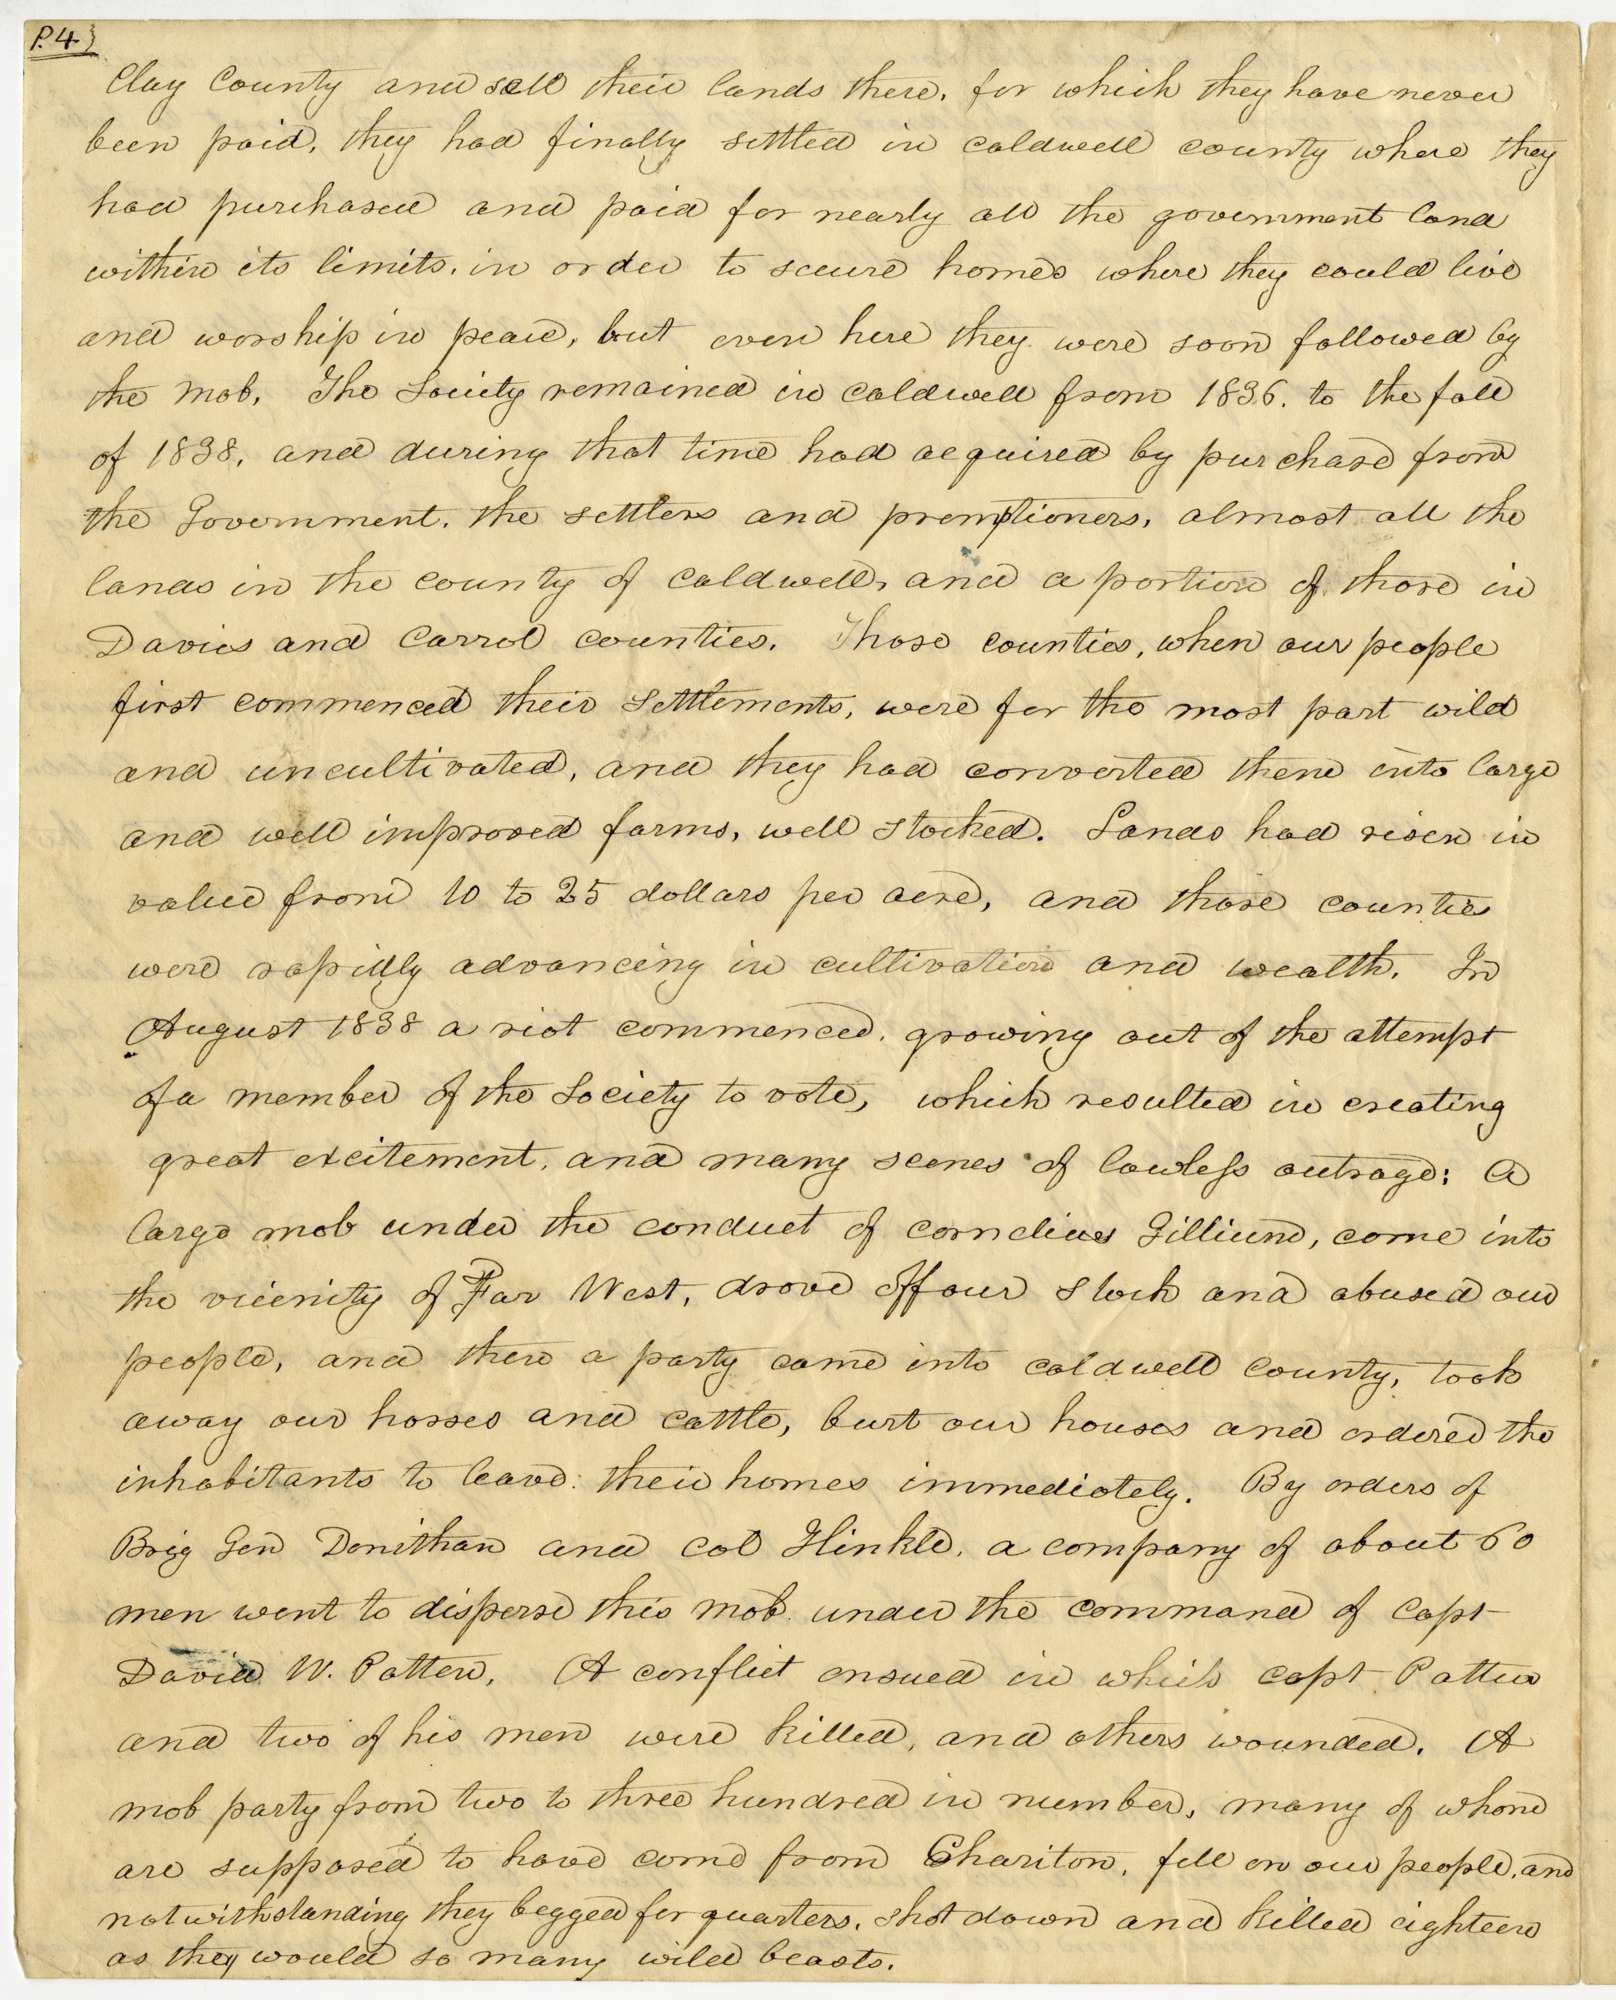 P. 4
Clay County and sell their lands there, for which they have never
been paid, they had finally settled in caldwell county where they
had purchased and paid for nearly all the government land
within its limits, in order to secure homes where they could live
and worship in peace, but even here they were soon followed by
the mob. The Society remained in caldwell from 1836. to the fall
of 1838, and during that time had acquired by purchase from
the Government, the settlers and premptioners, almost all the
lands in the county of caldwell, and a portion of those in
Davies and Carrol counties. Those counties, when our people
first commenced their settlements, were for the most part wild
and uncultivated, and they had converted them into large
and well improved farms, well stocked. Lands had risen in
value from 10 to 25 dollars per acre, and those counties
were rapidly advancing in cultivation and wealth. In
August 1838 a riot commenced, growing out of the attempt
of a member of the Society to vote, which resulted in creating
great excitement, and many scenes of lawless outrage; A
large mob under the conduct of cornelius Gillium, come into
the vicinity of Far West, drove off our stock and abused our
people, and then a party came into caldwell county, took
away our horses and cattle, burt our houses and ordered the
inhabitants to leave: their homes immediately. By orders of
Brig Gen Donithan and col Hinkle, a company of about 60
men went to disperse this mob. under the command of Capt
David W. Patten, A conflict ensued in which capt Patten
and two of his men were killed, and others wounded. A
mob party from two to three hundred in number, many of whom
are supposed to have come from Chariton, fell on our people, and
notwithstanding they begged for quarters, shot down and killed eighteen
as they would so many wild beasts.